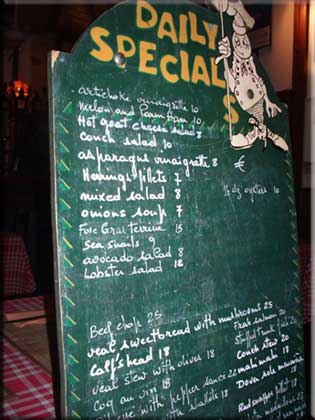 DAILY
SPECIALS
artichoke vinaigrette 10
Melon and Parm Ham 10
Hot goat cheese salad 8
conch salad 10
asparagus vinaigrette 8
€
Herrings filets 7
mixed salad 8
1/2 dz oysters 10
onions soup 7
Foie Gras terrine 15
Sea snails 9
avocado salad 8
Lobster salad 18
Beef chop 25
veal sweetbread with mushrooms 25
Calf's head 18
Fresh salmon 20
veal stew with olives 18
Stuffed
Conch stew 20
Coq au vin 18
mahi mahi 18
with pepper sauce 22
Dova sole meunière
with shallots 18
Red snapper filet 18